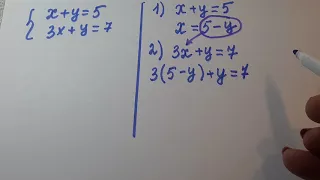 x+y=5
3x+y=7
1) x+y=5
x=5-y
2) 3x+y=7
3(5-y)+y=7